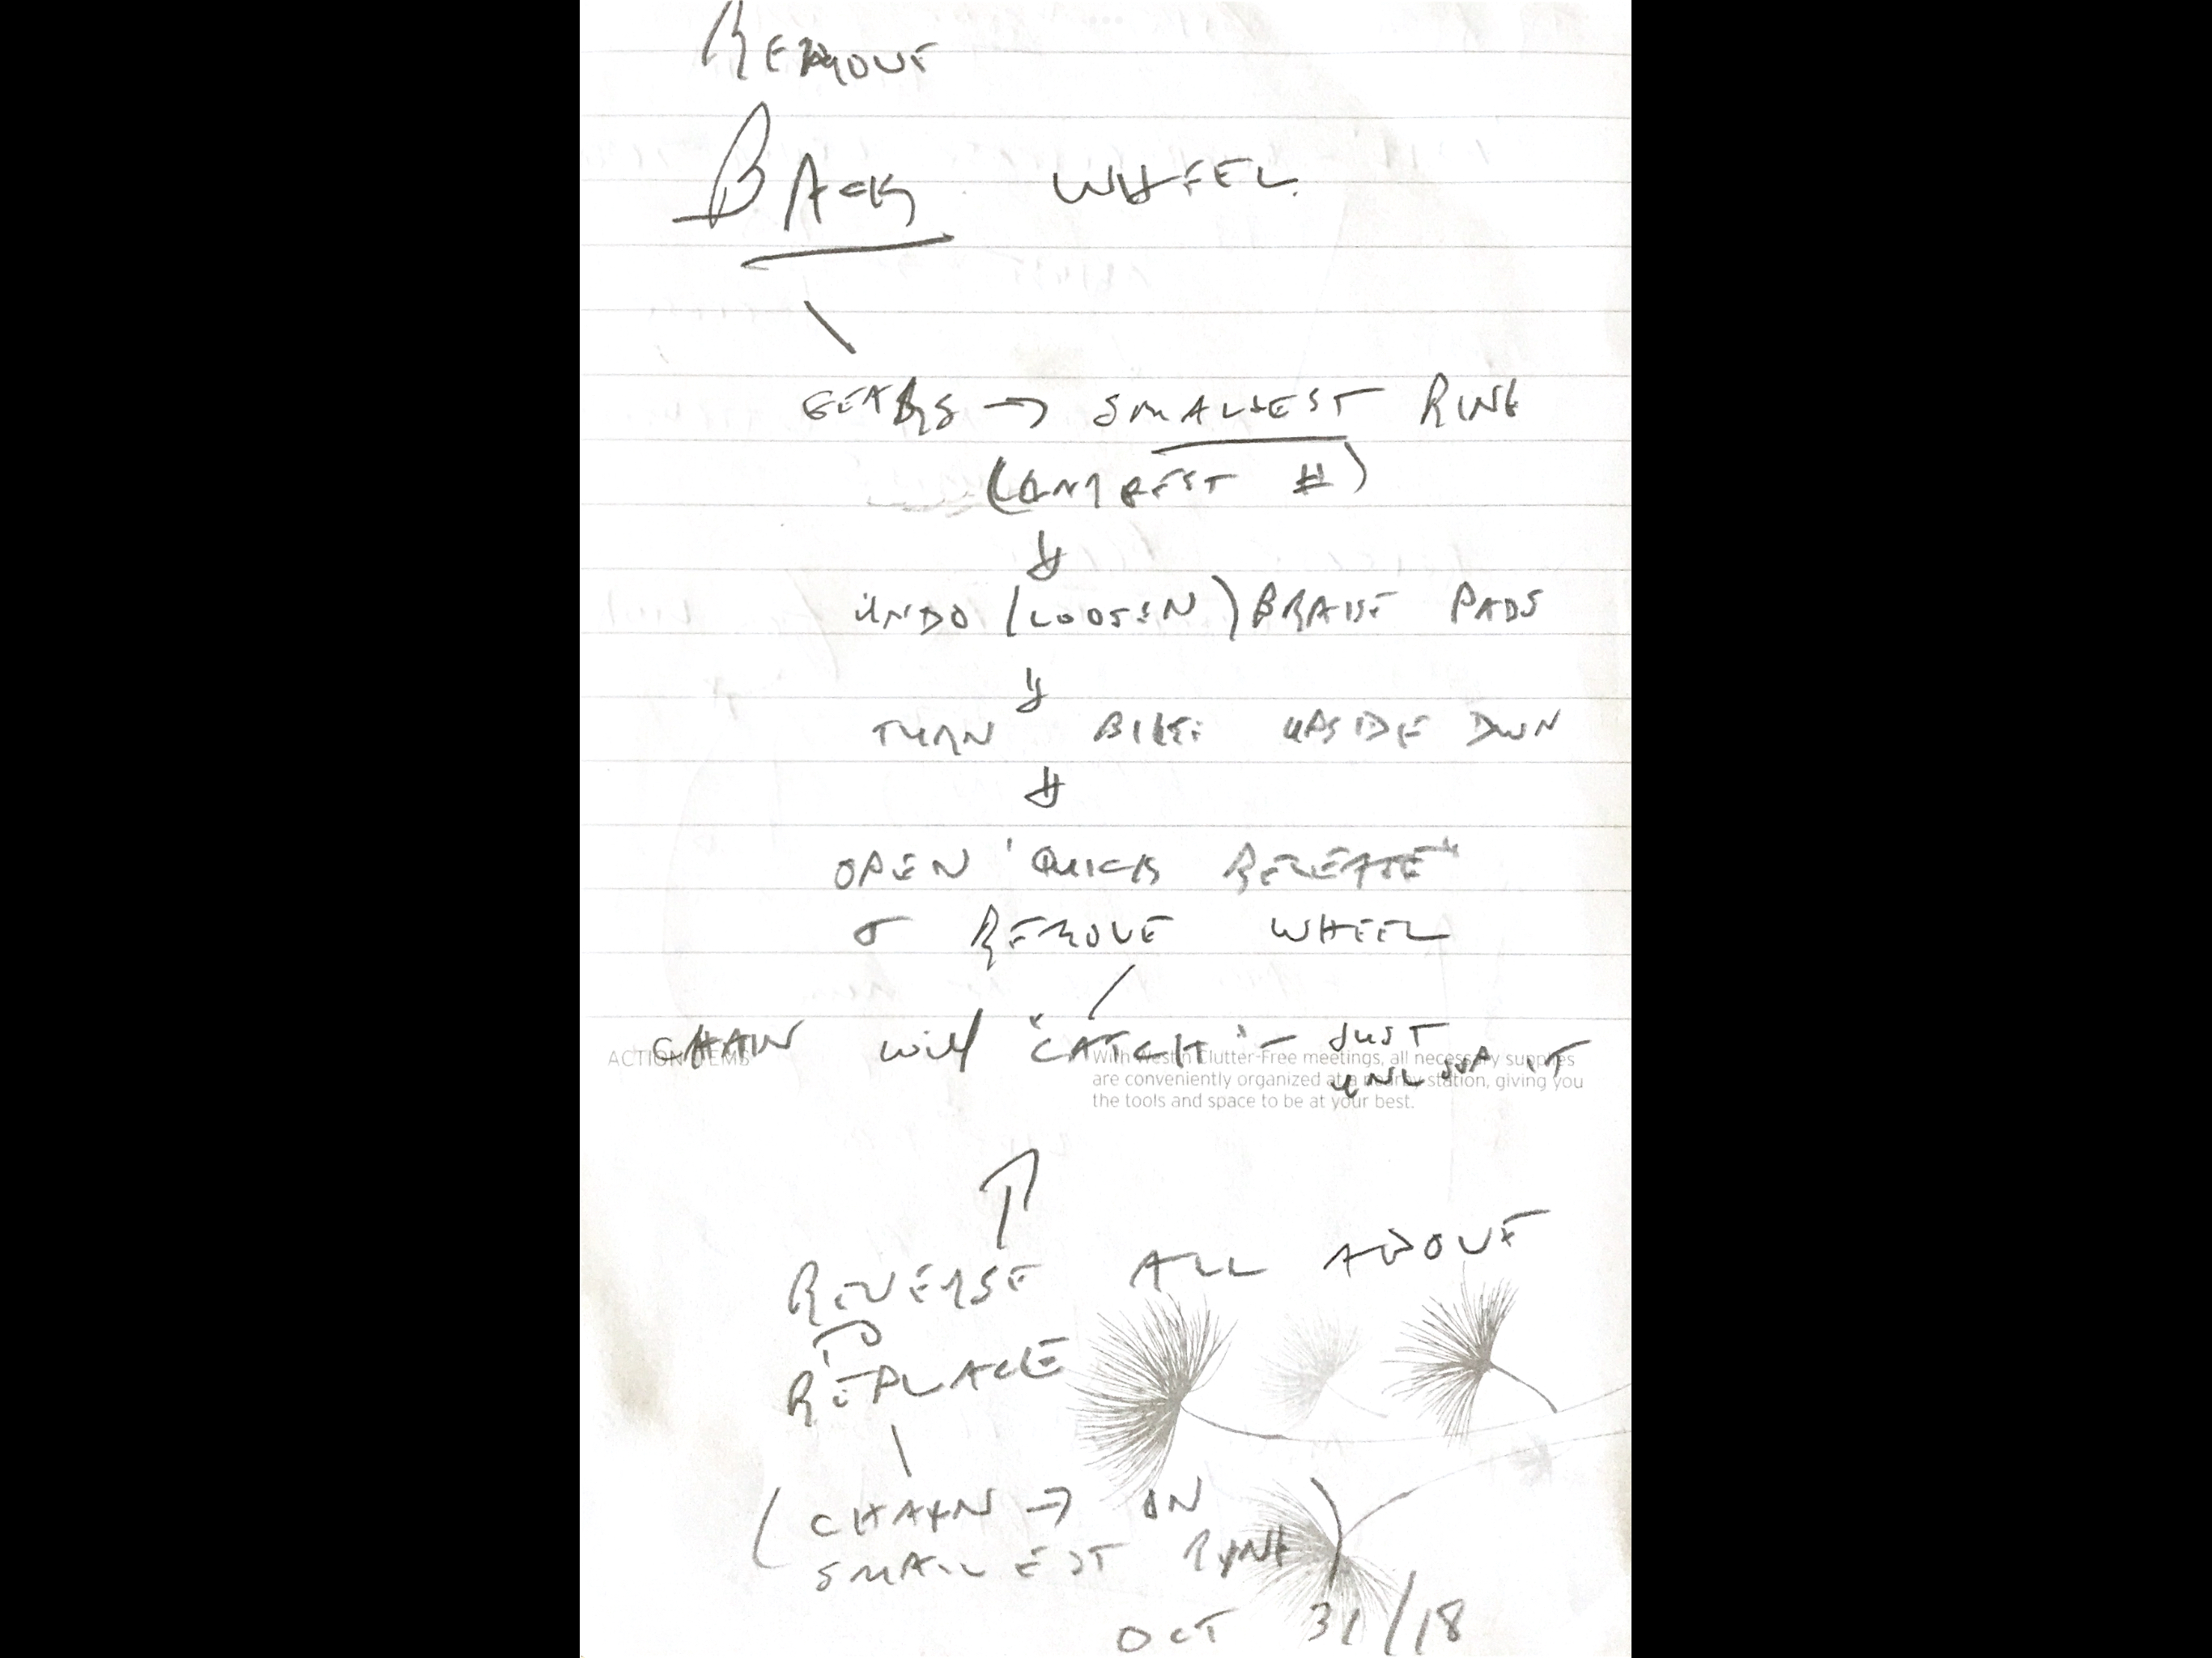 REMOVE
BACK WHEEL
GEARS → SMALLEST RING
(LARGEST #)
UNDO (LOOSEN) BRAKE PADS
TURN BIKE UPSIDE DWN
OPEN 'QUICK RELEASE"
REMOVE WHEEL
CHAIN will "CATCH" - JUST
UNLOOP IT
ACTION ITEMS
With Westin Clutter-Free meetings, all necessary supplies
are conveniently organized at a nearby station, giving you
the tools and space to be at your best.
REVERSE ALL ABOVE
REPLACE
(CHAIN → ON
SMALLEST RING)
OCT 31/18